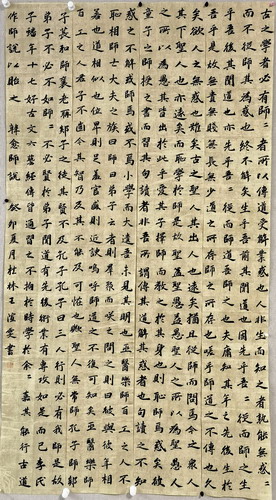 古之學者必有師々者所以傳道受業解惑也人非生而知之者孰能無惑
而不從師其為惑也終不解矣生乎吾前其聞道也固先乎吾々從而師之生
乎吾後其聞道也亦先乎吾々從而師之吾師道也夫庸知其年之先後生於
吾乎是故無貴無賤無長無少道之所存師之所存也嗟乎師道之不傳也久
矣欲人之無惑也難矣古之聖人其出人也遠矣猶且從師而問焉今之衆人
其下聖人也亦遠矣而恥學於師是故聖益聖愚益愚聖人之所以為聖愚人
之所以為愚其皆出於此乎愛其子擇師而教之於其身也則恥師焉惑矣彼
童子之師授之書而習其句讀者非吾所謂傳其道解其惑者也句讀之不知
惑之不解或師焉或不焉小學而大遺吾未見其明也巫醫樂師百工之人不
恥相師士大夫之族曰師曰弟子云者則群聚而笑之問之則曰彼與彼年相
若也道相似也位卑則足羞官盛則近諛嗚呼師道之不復可知矣巫醫樂師
百工之人君子不齒今其智乃反不能及其可怪也歟聖人無常師孔子師郯
子萇弘師襄老聃郯子之徒其賢不及孔子孔子曰三人行則必有我師是故
弟子不必不如師々不必賢於弟子聞道有先後術業有專攻如是而已李氏
子蟠年十七好古文六藝經傳皆通習之不拘於時學於余々嘉其能行古道
作師說以貽之 韓愈師說 癸卯夏月杜林王雯書